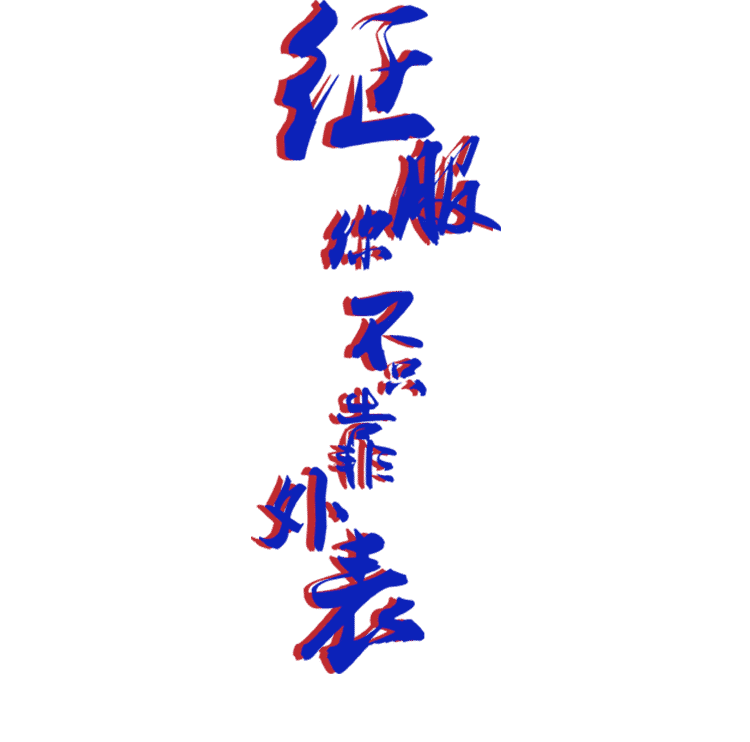 征服你不只靠外表